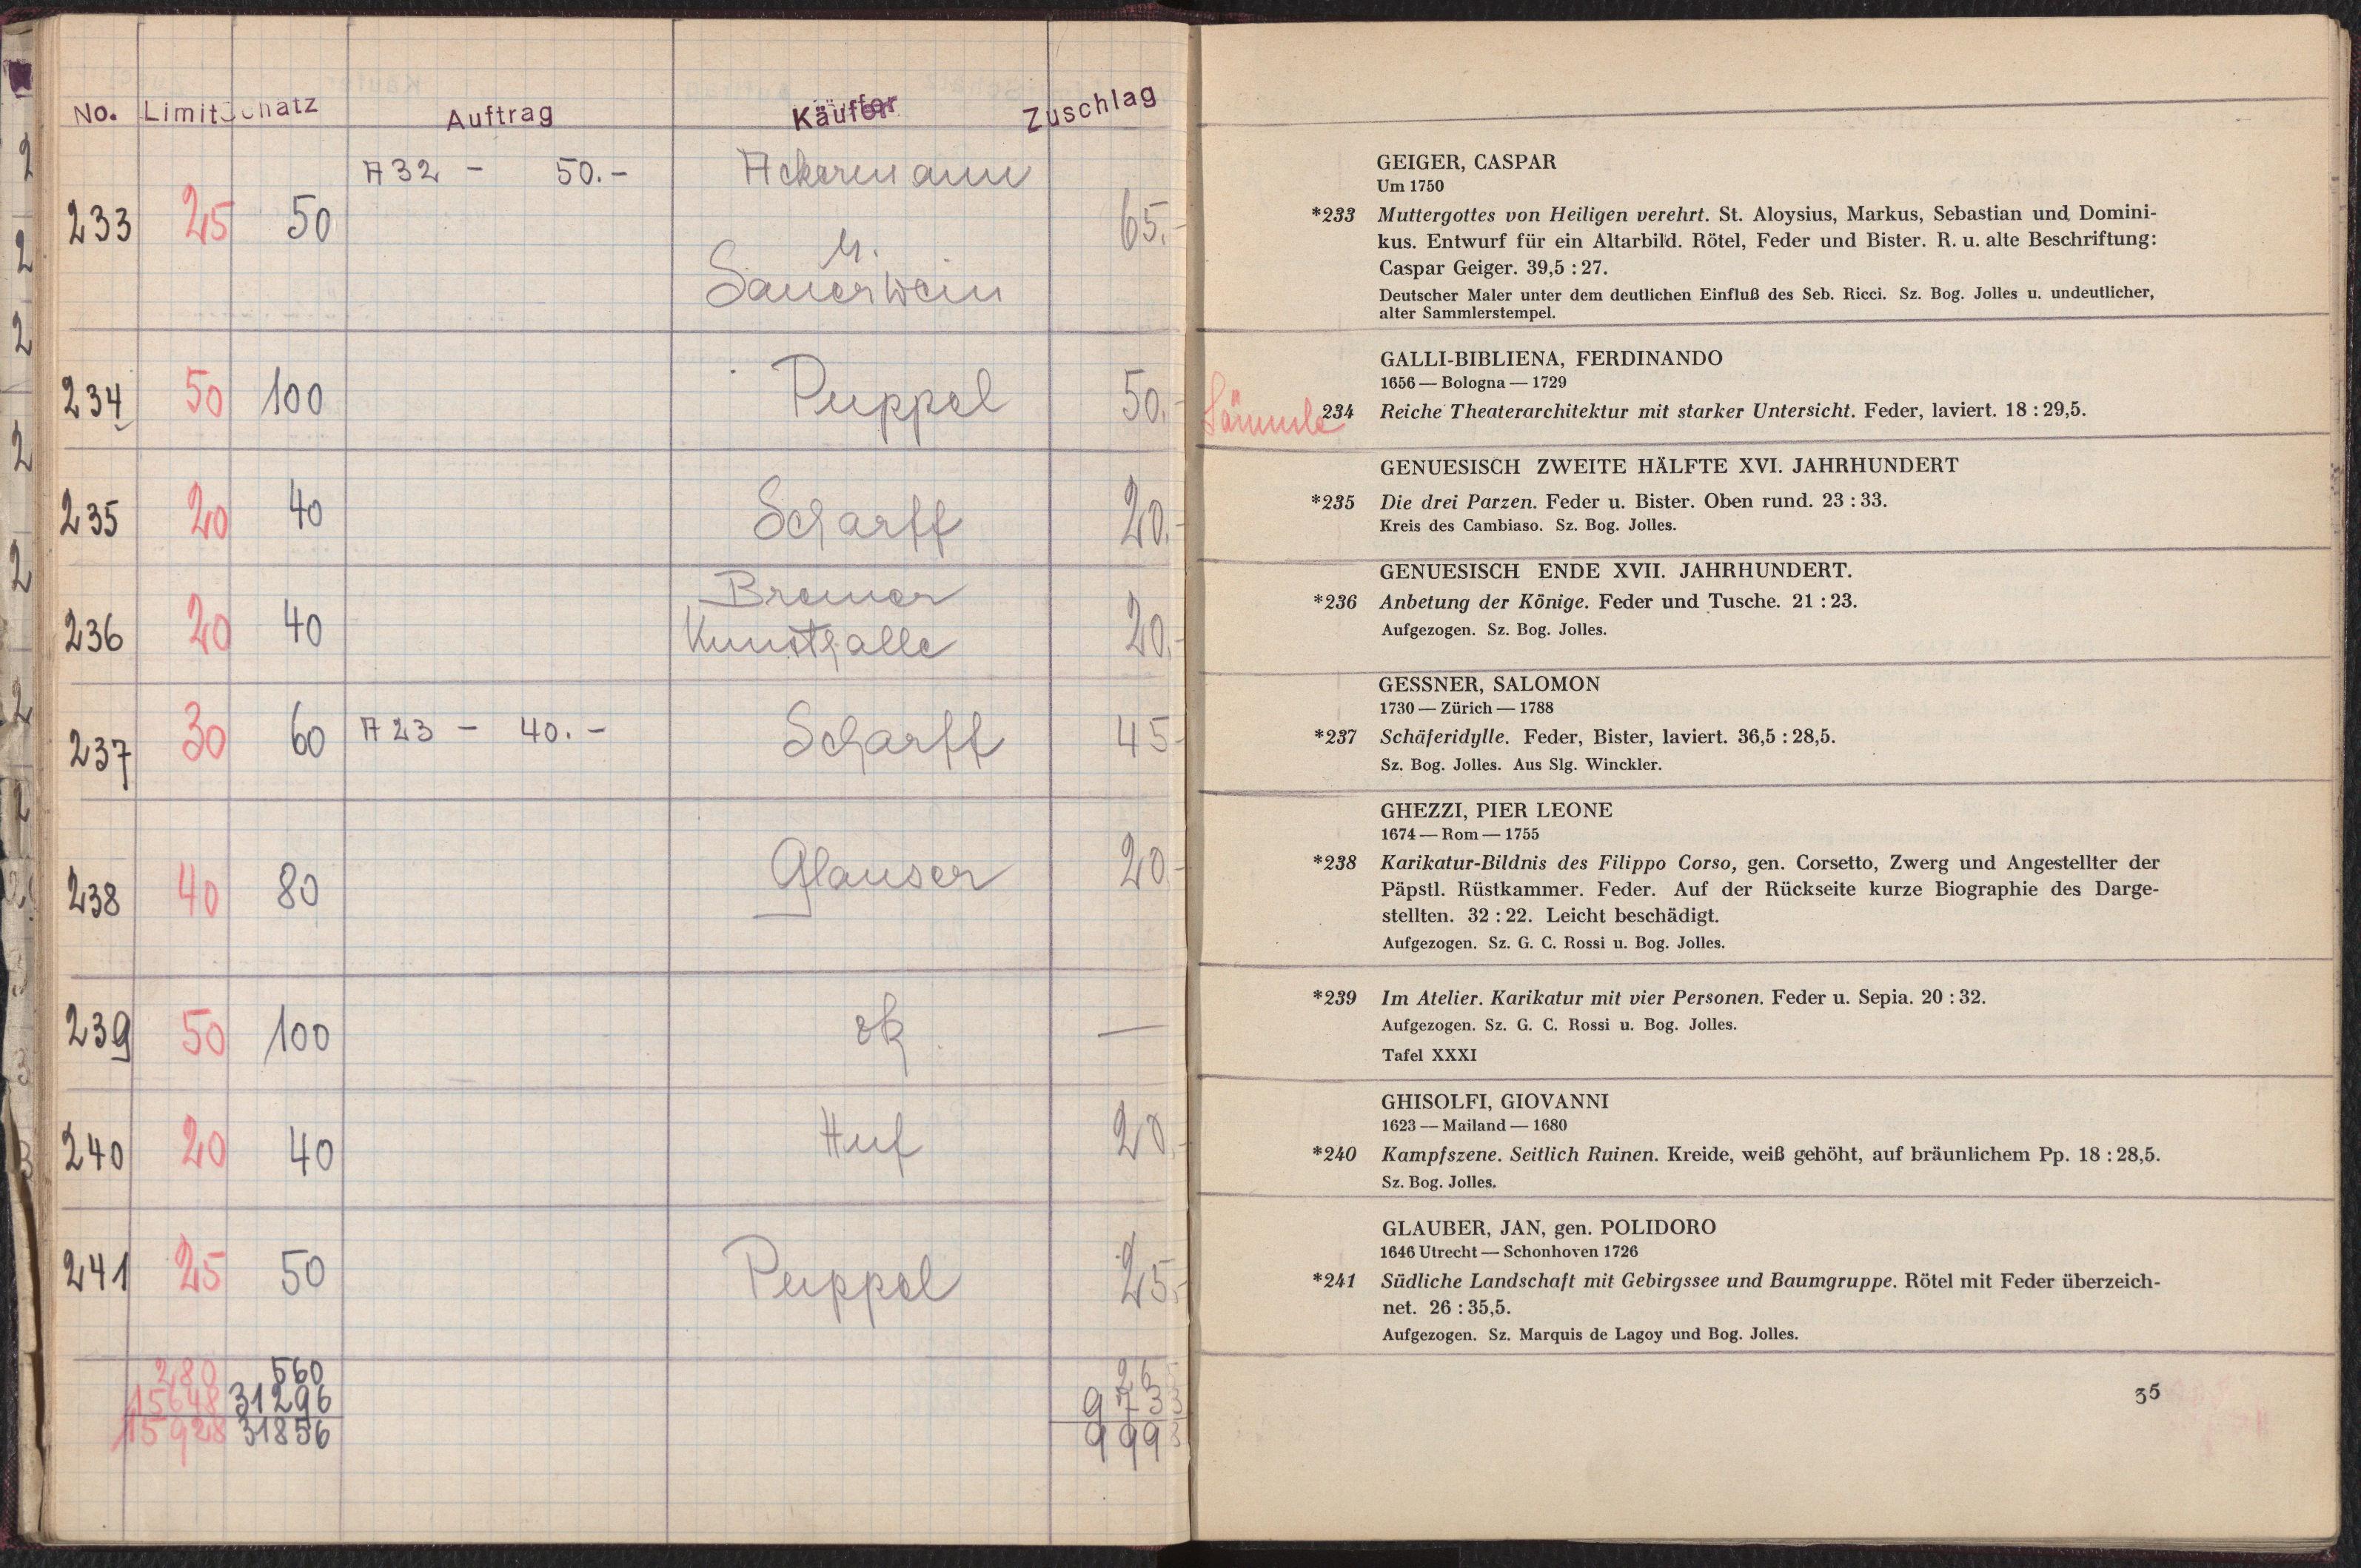 No. Limit Schatz Auftrag Käufer Zuschlag
A 32 - 50.- Ackermann
233 25 50 65.-
u.
Sauerwein
234 50 100 Puppel 50.-
235 20 40 Scharff 20.-
Bremer
236 20 40 Kunsthalle 20.-
237 30 60 A 23 - 40.- Scharff 45.-
238 40 80 Glauser 20.-
239 50 100 —
240 20 40 Huf 20.-
241 25 50 Puppel 25.-
280 560
15648 31296 9733
15928 31856
GEIGER, CASPAR
Um 1750
*233 Muttergottes von Heiligen verehrt. St. Aloysius, Markus, Sebastian und Domini-
kus. Entwurf für ein Altarbild. Rötel, Feder und Bister. R. u. alte Beschriftung:
Caspar Geiger. 39,5 : 27.
Deutscher Maler unter dem deutlichen Einfluß des Seb. Ricci. Sz. Bog. Jolles u. undeutlicher,
alter Sammlerstempel.
GALLI-BIBLIENA, FERDINANDO
1656 — Bologna — 1729
234 Reiche Theaterarchitektur mit starker Untersicht. Feder, laviert. 18 : 29,5.
GENUESISCH ZWEITE HÄLFTE XVI. JAHRHUNDERT
*235 Die drei Parzen. Feder u. Bister. Oben rund. 23 : 33.
Kreis des Cambiaso. Sz. Bog. Jolles.
GENUESISCH ENDE XVII. JAHRHUNDERT.
*236 Anbetung der Könige. Feder und Tusche. 21 : 23.
Aufgezogen. Sz. Bog. Jolles.
GESSNER, SALOMON
1730 — Zürich — 1788
*237 Schäferidylle. Feder, Bister, laviert. 36,5 : 28,5.
Sz. Bog. Jolles. Aus Slg. Winckler.
GHEZZI, PIER LEONE
1674 — Rom — 1755
*238 Karikatur-Bildnis des Filippo Corso, gen. Corsetto, Zwerg und Angestellter der
Päpstl. Rüstkammer. Feder. Auf der Rückseite kurze Biographie des Darge-
stellten. 32 : 22. Leicht beschädigt.
Aufgezogen. Sz. G. C. Rossi u. Bog. Jolles.
*239 Im Atelier. Karikatur mit vier Personen. Feder u. Sepia. 20 : 32.
Aufgezogen. Sz. G. C. Rossi u. Bog. Jolles.
Tafel XXXI
GHISOLFI, GIOVANNI
1623 — Mailand — 1680
*240 Kampfszene. Seitlich Ruinen. Kreide, weiß gehöht, auf bräunlichem Pp. 18 : 28,5.
Sz. Bog. Jolles.
GLAUBER, JAN, gen. POLIDORO
1646 Utrecht — Schonhoven 1726
*241 Südliche Landschaft mit Gebirgssee und Baumgruppe. Rötel mit Feder überzeich-
net. 26 : 35,5.
Aufgezogen. Sz. Marquis de Lagoy und Bog. Jolles.
35